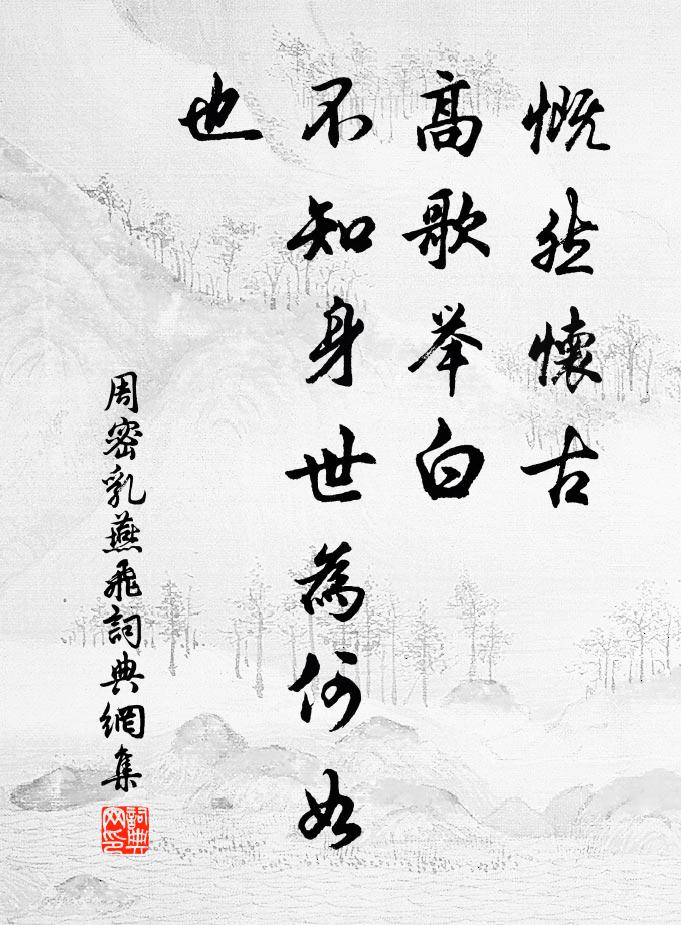 慨然懷古
高歌举白
不知身世為何如
也
周密乳燕飛詞典網集
詞典
网印